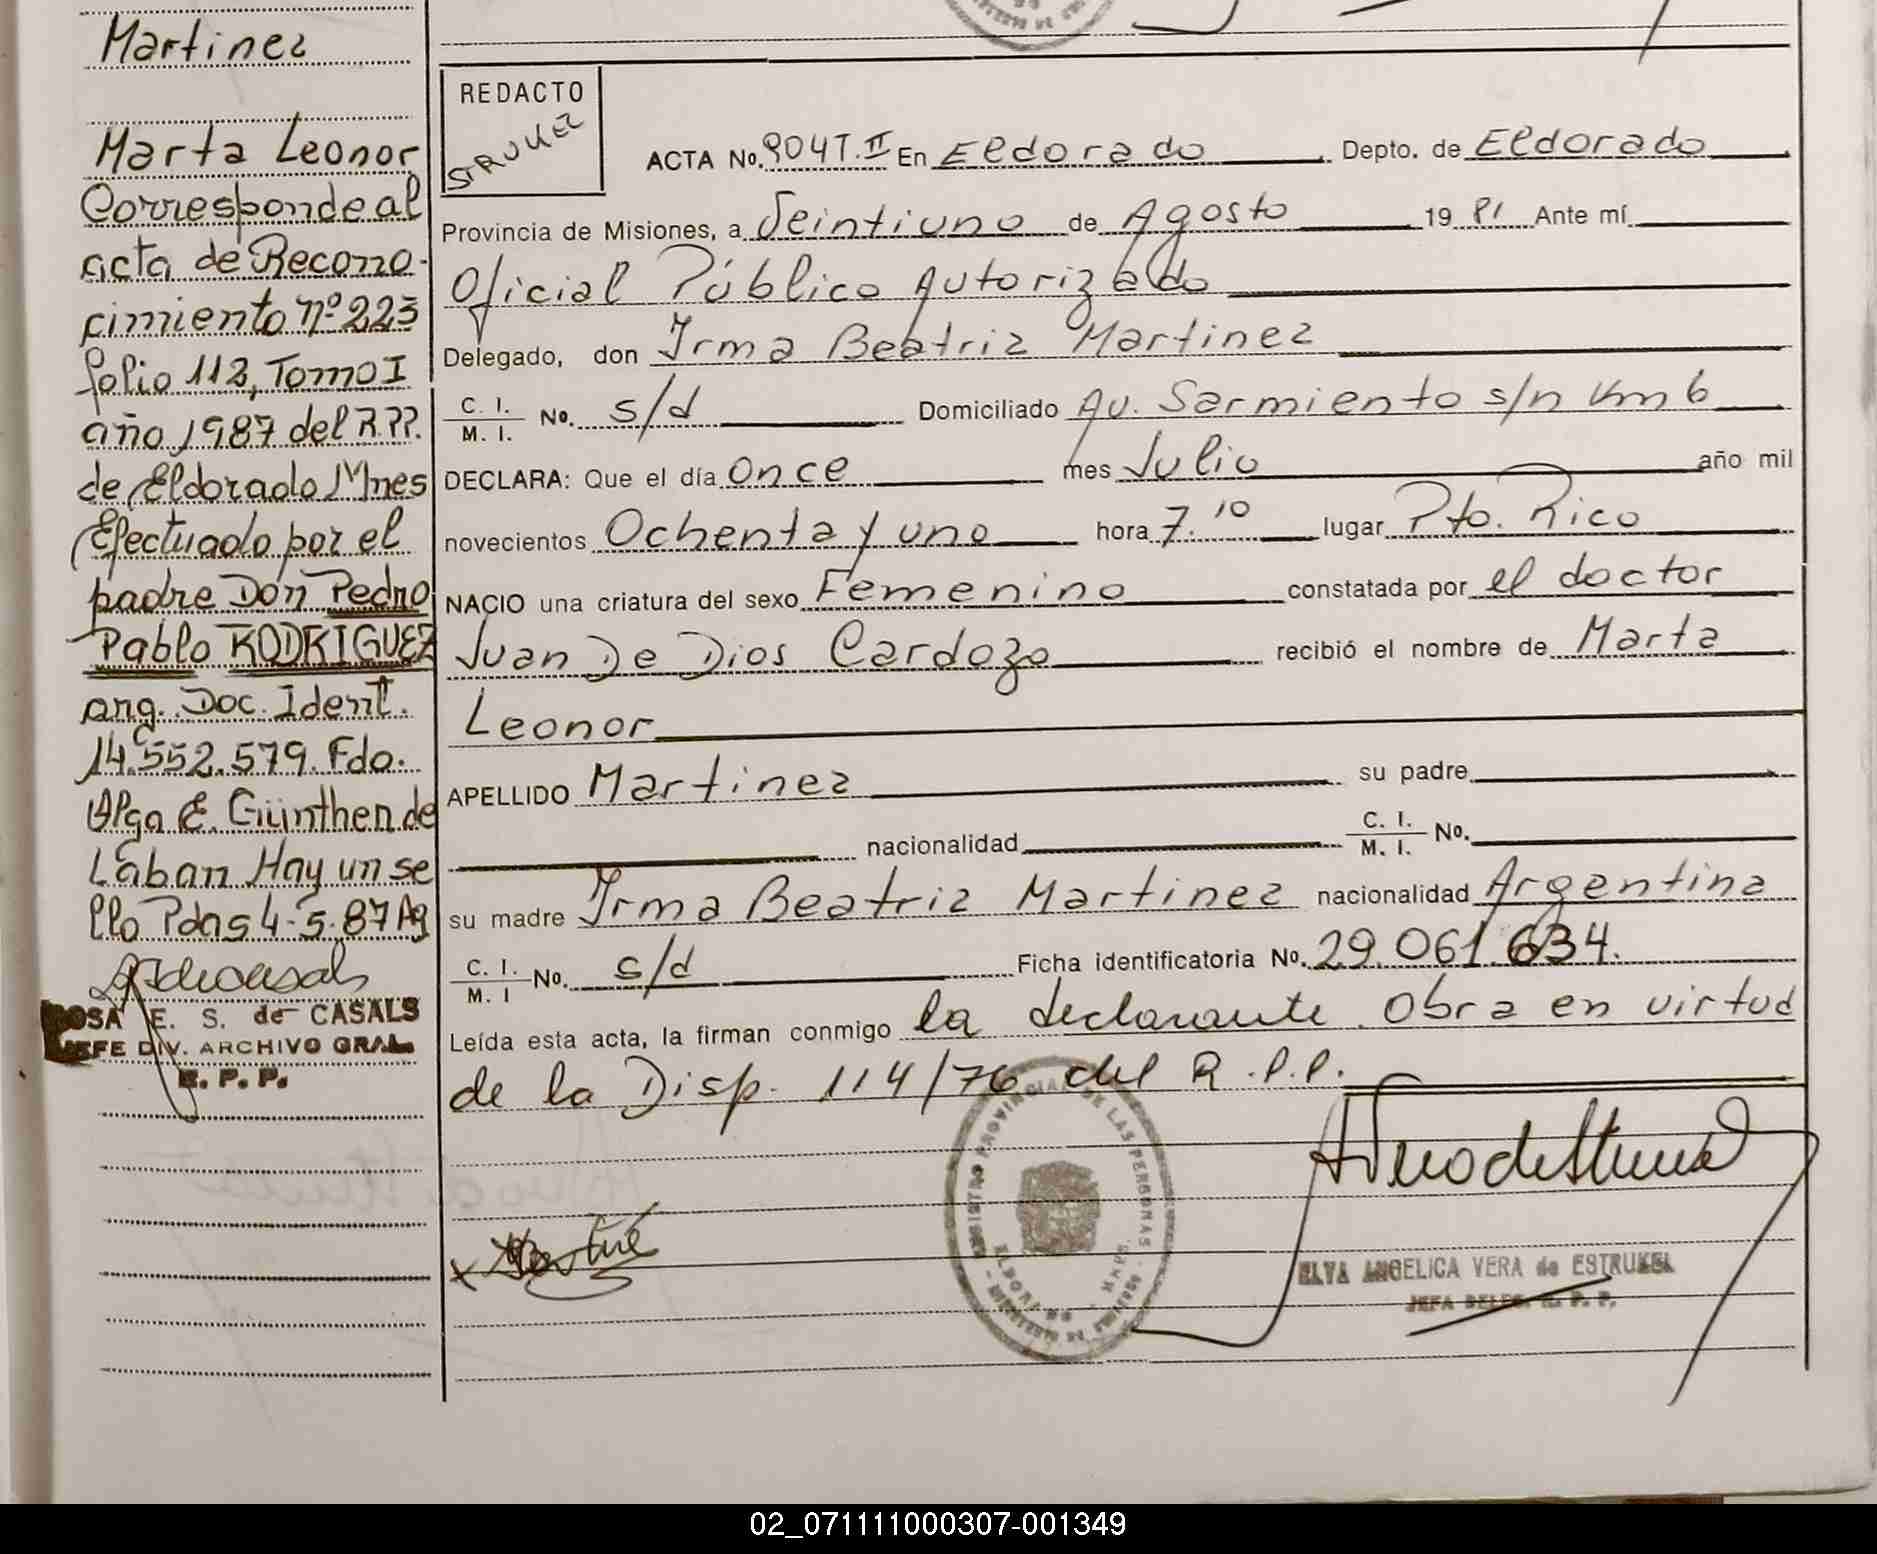 Martinez
Marta Leonor
Corresponde al
acta de Recono-
cimiento nº 223
folio 112, Tomo I
año 1987 del R.P.P.
de Eldorado Mnes
Efectuado por el
padre Don Pedro
Pablo RODRIGUEZ
arg. Doc. Ident.
14.552.579. Fdo.
Olga E. Günther de
Laban Hay un se
llo Pdas 4-5-87 Ag
ROSA E. S. de CASALS
JEFE DIV. ARCHIVO GRAL.
R. P. P.
REDACTO
ACTA No. 904 T. II En Eldorado Depto. de Eldorado
Provincia de Misiones, a Veintiuno de Agosto 19 81 Ante mí
Oficial Público Autorizado
Delegado, don Irma Beatriz Martinez
C. I. / M. I. No. s/d Domiciliado Av. Sarmiento s/n Km 6
DECLARA: Que el día once mes Julio año mil
novecientos Ochenta y uno hora 7.10 lugar Pto. Rico
NACIO una criatura del sexo Femenino constatada por el doctor
Juan De Dios Cardozo recibió el nombre de Marta
Leonor
APELLIDO Martinez su padre
nacionalidad C. I. / M. I. No.
su madre Irma Beatriz Martinez nacionalidad Argentina
C. I. / M. I No. s/d Ficha identificatoria No. 29.061.634.
Leída esta acta, la firman conmigo la declarante. Obra en virtud
de la Disp. 114/76 del R.P.P.
REGISTRO PROVINCIAL DE LAS PERSONAS
ELDORADO
ELVA ANGELICA VERA de ESTRUKEL
JEFA DELEG. R. P. P.
02_071111000307-001349